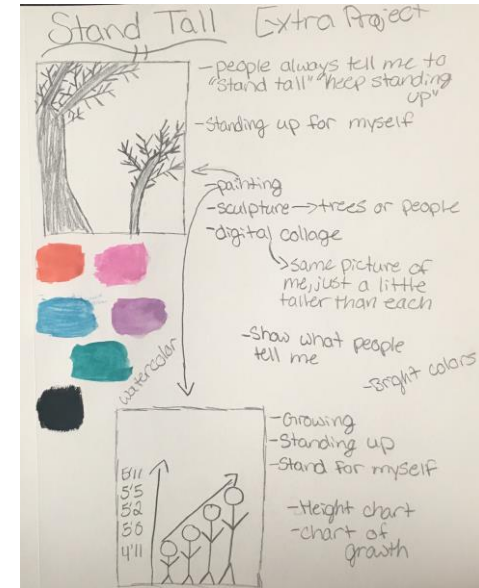 Stand Tall Extra Project
-people always tell me to
"Stand tall" "keep standing
up"
-Standing up for myself
-painting
-sculpture→trees or people
-digital collage
same picture of
me, just a little
taller than each
-Show what people
tell me
-Bright colors
watercolor
-Growing
-Standing up
-Stand for myself
-Height chart
-chart of
growth
5'11
5'5
5'2
5'0
4'11